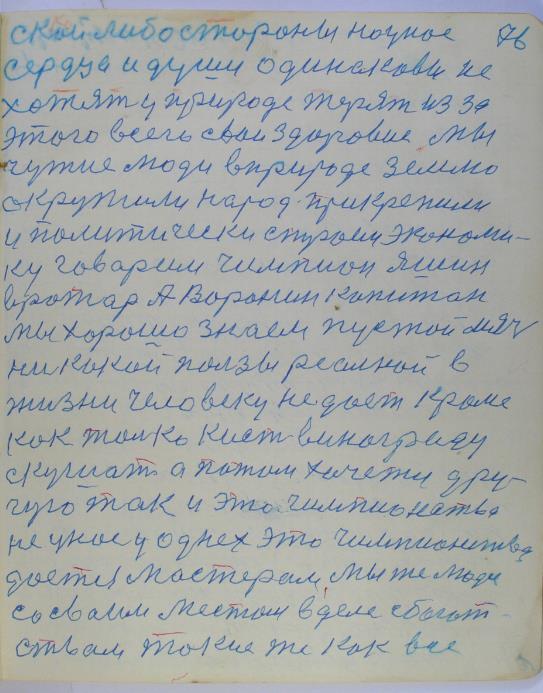 ской либо стороны научное 76
сердца и души одинаковы не
хотят у природе терят из за
этого всего свои здоровие мы
чужие люди в природе землю
окружили народ прикрепили
и политически строем экономи-
ку говарим чимпион яшин
вротар А Воронин капитан
мы хорошо знаем пустой мяч
никакой ползы реалной в
жизни человеку не дает кроме
как толко кист винограду
скушат а потом хочети дру-
гую так и это чимпионства
не у кого у однех это чимпионства
дается мастерам мы же люди
со своим местом в деле с богат-
ствам такие же как все